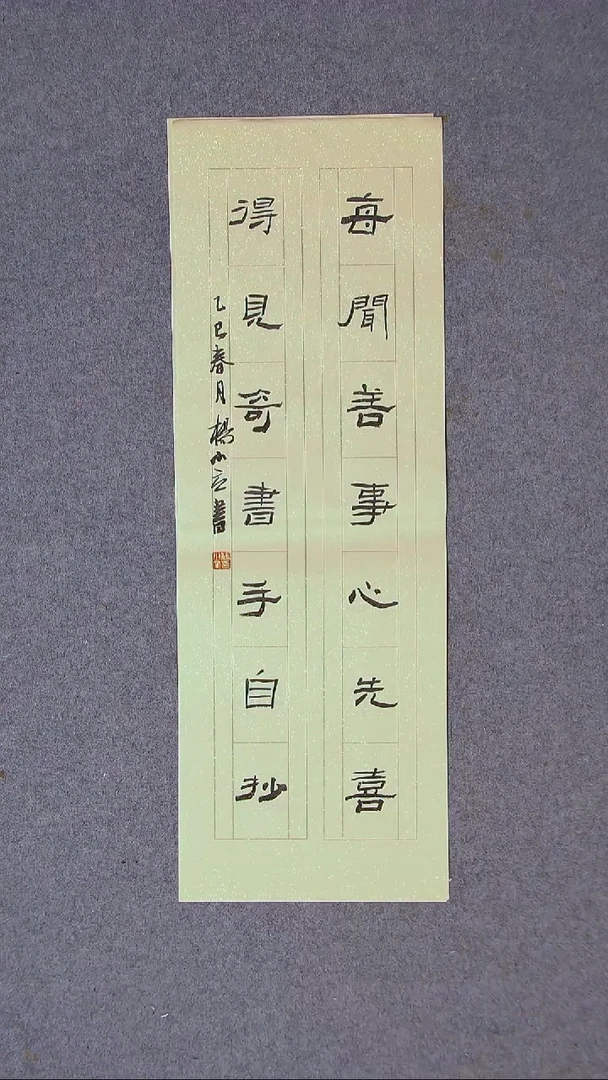 每聞善事心先喜
得見奇書手自抄
乙巳春月楊小立書